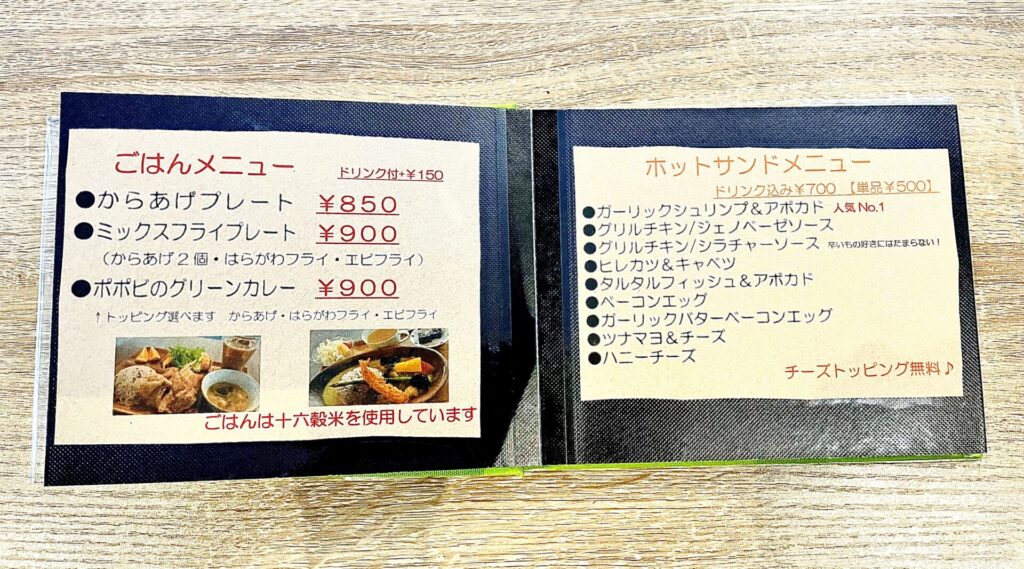 ごはんメニュー
ドリンク付+¥150
●からあげプレート ¥850
●ミックスフライプレート ¥900
（からあげ2個・はらがわフライ・エビフライ）
●ポポビのグリーンカレー ¥900
↑トッピング選べます からあげ・はらがわフライ・エビフライ
ごはんは十六穀米を使用しています
ホットサンドメニュー
ドリンク込み¥700 【単品¥500】
●ガーリックシュリンプ＆アボカド 人気No.1
●グリルチキン/ジェノベーゼソース
●グリルチキン/シラチャーソース 辛いもの好きにはたまらない！
●ヒレカツ＆キャベツ
●タルタルフィッシュ＆アボカド
●ベーコンエッグ
●ガーリックバターベーコンエッグ
●ツナマヨ＆チーズ
●ハニーチーズ
チーズトッピング無料♪